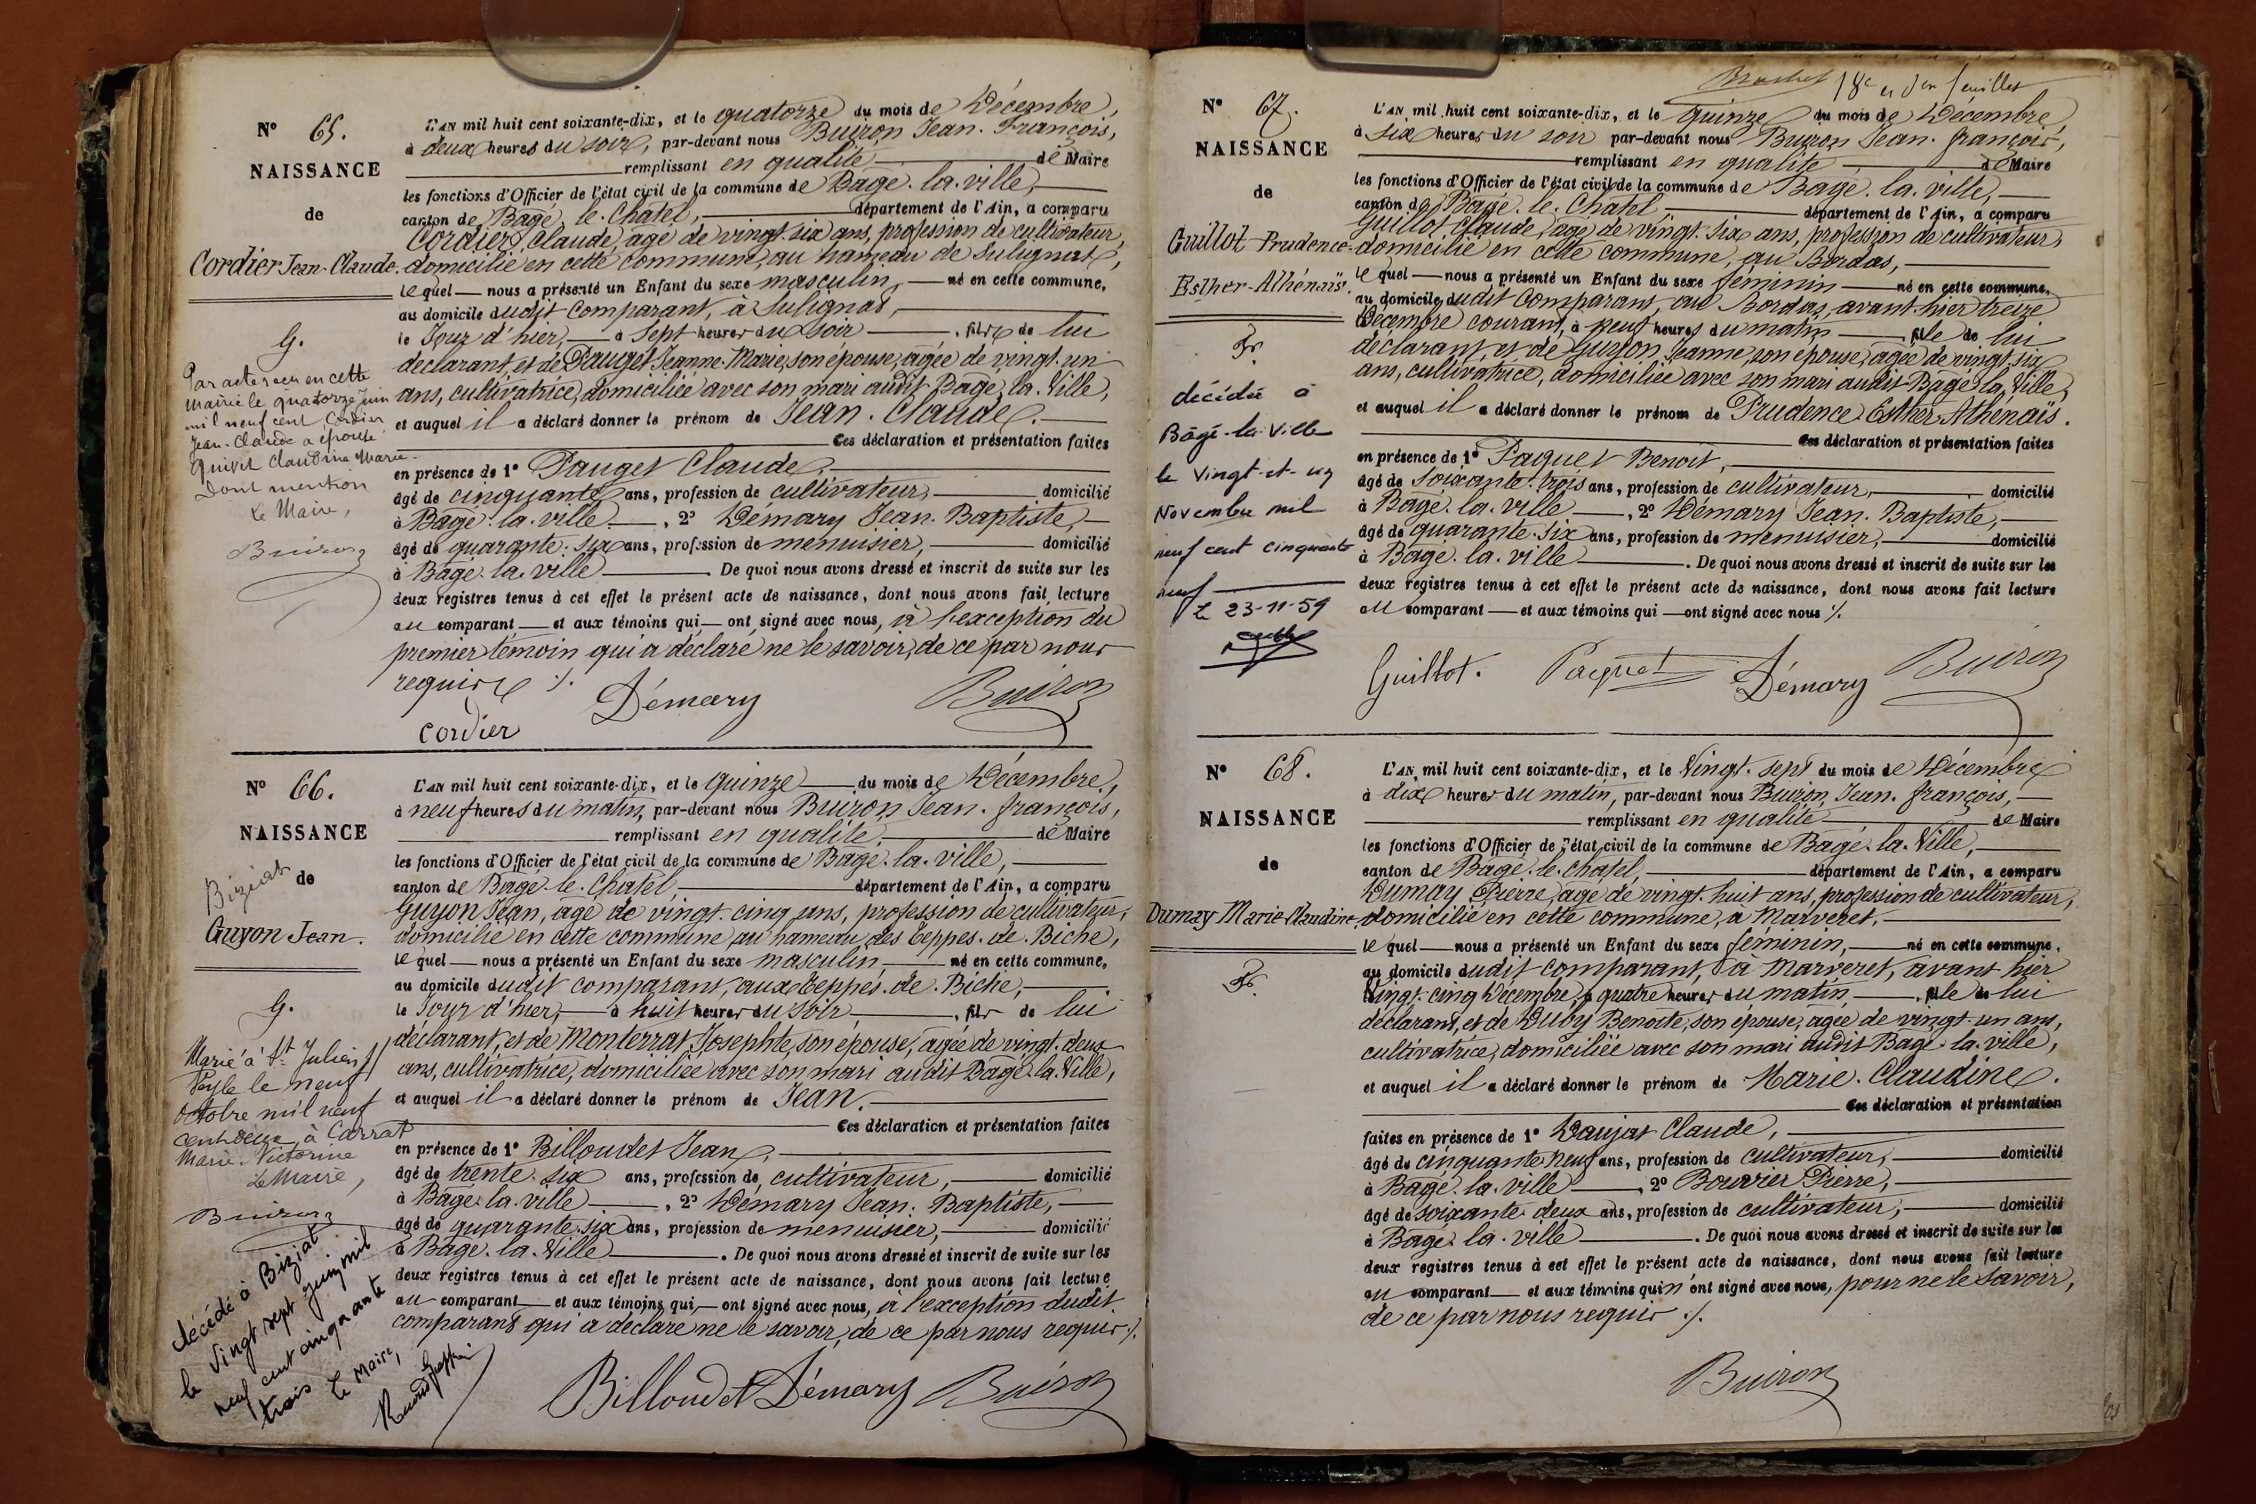 N° 65.
NAISSANCE
de
Cordier Jean-Claude.
G.
Par acte reçu en cette
Mairie le quatorze juin
mil neuf cent Cordier
Jean-Claude a épousé
Guivet Claudine Marie.
Dont mention
Le Maire,
Buiron
L'AN mil huit cent soixante-dix, et le quatorze du mois de Décembre,
à deux heures du soir, par-devant nous Buiron Jean-François,
remplissant en qualité de Maire
les fonctions d'Officier de l'état civil de la commune de Bâgé-la-ville,
canton de Bâgé-le-Châtel, département de l'Ain, a comparu
Cordier Claude, âgé de vingt-six ans, profession de cultivateur,
domicilié en cette commune, au hameau de Sulignat,
lequel nous a présenté un Enfant du sexe masculin, né en cette commune,
au domicile dudit comparant, à Sulignat,
le Jour d'hier, à Sept heures du soir, fils de lui
déclarant, et de Pauget Jeanne-Marie, son épouse, âgée de vingt-un
ans, cultivatrice, domiciliée avec son mari audit Bâgé-la-Ville,
et auquel il a déclaré donner le prénom de Jean-Claude.
Ces déclaration et présentation faites
en présence de 1° Pauget Claude,
âgé de cinquante ans, profession de cultivateur, domicilié
à Bâgé-la-ville, 2° Démary Jean-Baptiste,
âgé de quarante-six ans, profession de menuisier, domicilié
à Bâgé-la-ville. De quoi nous avons dressé et inscrit de suite sur les
deux registres tenus à cet effet le présent acte de naissance, dont nous avons fait lecture
au comparant et aux témoins qui ont signé avec nous, à l'exception du
premier témoin qui a déclaré ne le savoir, de ce par nous
requis ./.
Démary Buiron
Cordier
N° 66.
NAISSANCE
de
Biziat
Guyon Jean.
G.
Marié à St Julien s/
Veyle le neuf
Octobre mil neuf
cent deux, à Carrat
Marie-Victorine
Le Maire,
Buiron
décédé à Biziat
le vingt sept juin mil
neuf cent cinquante
trois
Le Maire,
L'AN mil huit cent soixante-dix, et le quinze du mois de Décembre,
à neuf heures du matin, par-devant nous Buiron Jean-françois,
remplissant en qualité de Maire
les fonctions d'Officier de l'état civil de la commune de Bâgé-la-ville,
canton de Bâgé-le-Châtel, département de l'Ain, a comparu
Guyon Jean, âgé de vingt-cinq ans, profession de cultivateur,
domicilié en cette commune au hameau des Teppes-de-Biche,
lequel nous a présenté un Enfant du sexe masculin, né en cette commune,
au domicile dudit comparant, aux Teppes-de-Biche,
le Jour d'hier, à huit heures du soir, fils de lui
déclarant, et de Monterrat Josephte, son épouse, âgée de vingt-deux
ans, cultivatrice, domiciliée avec son mari audit Bâgé-la-Ville,
et auquel il a déclaré donner le prénom de Jean.
Ces déclaration et présentation faites
en présence de 1° Billoudet Jean,
âgé de trente-six ans, profession de cultivateur, domicilié
à Bâgé-la-ville, 2° Démary Jean-Baptiste,
âgé de quarante-six ans, profession de menuisier, domicilié
à Bâgé-la-Ville. De quoi nous avons dressé et inscrit de suite sur les
deux registres tenus à cet effet le présent acte de naissance, dont nous avons fait lecture
au comparant et aux témoins qui ont signé avec nous, à l'exception dudit
comparant qui a déclaré ne le savoir, de ce par nous requis ./.
Billoudet Démary Buiron
18e et Der feuillet
N° 67.
NAISSANCE
de
Guillot Prudence-
Esther-Athénaïs.
décédée à
Bâgé-la-Ville
le vingt-et-un
Novembre mil
neuf cent cinquante
neuf
Le 23-11-59
L'AN mil huit cent soixante-dix, et le quinze du mois de Décembre
à six heures du soir par-devant nous Buiron Jean-françois,
remplissant en qualité de Maire
les fonctions d'Officier de l'état civil de la commune de Bâgé-la-ville,
canton de Bâgé-le-Châtel département de l'Ain, a comparu
Guillot Claude, âgé de vingt-six ans, profession de cultivateur,
domicilié en cette commune, au Bordas,
lequel nous a présenté un Enfant du sexe féminin né en cette commune,
au domicile dudit comparant, au Bordas, avant-hier treize
Décembre courant, à neuf heures du matin, fille de lui
déclarant, et de Guyon Jeanne, son épouse, âgée de vingt-six
ans, cultivatrice, domiciliée avec son mari audit Bâgé-la-Ville,
et auquel il a déclaré donner le prénom de Prudence-Esther-Athénaïs.
Ces déclaration et présentation faites
en présence de 1° Paquet Benoit,
âgé de soixante-trois ans, profession de cultivateur, domicilié
à Bâgé-la-ville, 2° Démary Jean-Baptiste,
âgé de quarante-six ans, profession de menuisier, domicilié
à Bâgé-la-ville. De quoi nous avons dressé et inscrit de suite sur les
deux registres tenus à cet effet le présent acte de naissance, dont nous avons fait lecture
au comparant et aux témoins qui ont signé avec nous ./.
Guillot. Paquet Démary Buiron
N° 68.
NAISSANCE
de
Dumay Marie-Claudine.
L'AN mil huit cent soixante-dix, et le Vingt-sept du mois de Décembre
à dix heures du matin, par-devant nous Buiron Jean-françois,
remplissant en qualité de Maire
les fonctions d'Officier de l'état civil de la commune de Bâgé-la-Ville,
canton de Bâgé-le-Châtel, département de l'Ain, a comparu
Dumay Pierre, âgé de vingt-huit ans, profession de cultivateur,
domicilié en cette commune, à Marveret,
lequel nous a présenté un Enfant du sexe féminin, né en cette commune,
au domicile dudit comparant, à Marveret, avant-hier
Vingt-cinq Décembre, à quatre heures du matin, fille de lui
déclarant, et de Duby Benoîte, son épouse, âgée de vingt-un ans,
cultivatrice, domiciliée avec son mari audit Bâgé-la-ville,
et auquel il a déclaré donner le prénom de Marie-Claudine.
Ces déclaration et présentation
faites en présence de 1° Daujat Claude,
âgé de cinquante neuf ans, profession de cultivateur, domicilié
à Bâgé-la-ville, 2° Bouvier Pierre,
âgé de soixante-deux ans, profession de cultivateur, domicilié
à Bâgé-la-ville. De quoi nous avons dressé et inscrit de suite sur les
deux registres tenus à cet effet le présent acte de naissance, dont nous avons fait lecture
au comparant et aux témoins qui n'ont signé avec nous, pour ne le savoir,
de ce par nous requis ./.
Buiron